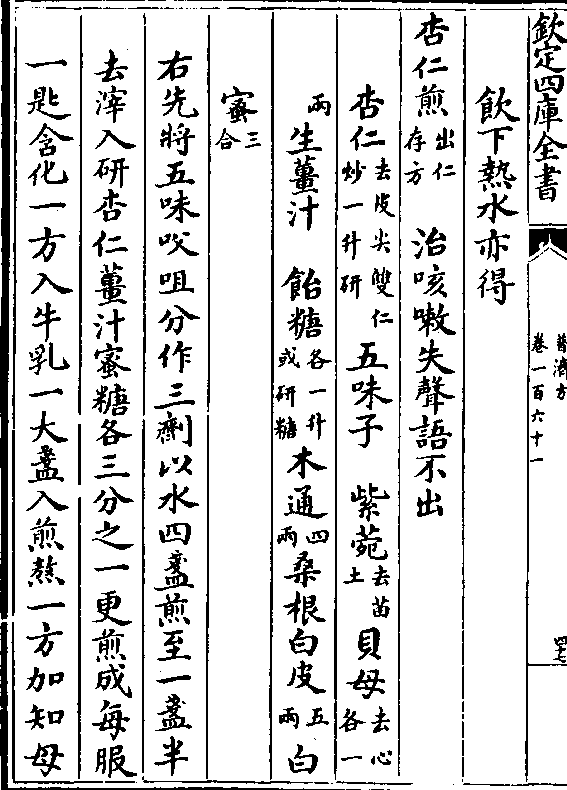 欽定四庫全書
普濟方
卷一百六十一
四七
飲下熱水亦得
杏仁煎出仁存方 治咳嗽失聲語不出
杏仁去皮尖雙仁炒一升研 五味子 紫菀去苗土 貝母去心各一
兩 生薑汁 飴糖各一升或研糖 木通四兩 桑根白皮五兩 白
蜜三合
右先將五味㕮咀分作三劑以水四盞煎至一盞半
去滓入研杏仁薑汁蜜糖各三分之一更煎成每服
一匙含化一方入牛乳一大盞入煎熬一方加知母